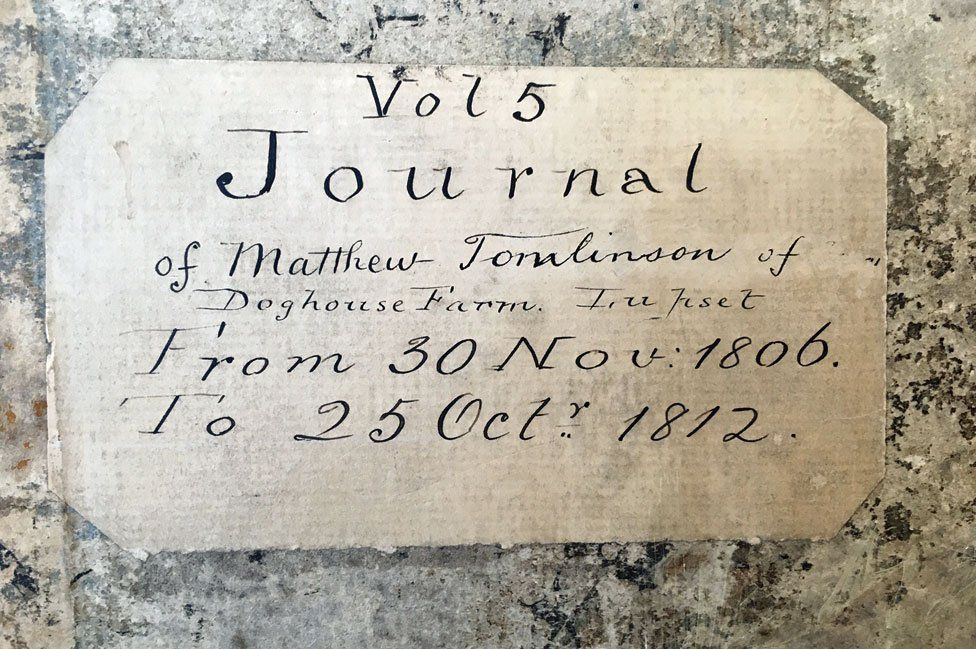 Vol 5
Journal
of Matthew Tomlinson of
Doghouse Farm. Lupset
From 30 Nov: 1806.
To 25 Octr 1812.